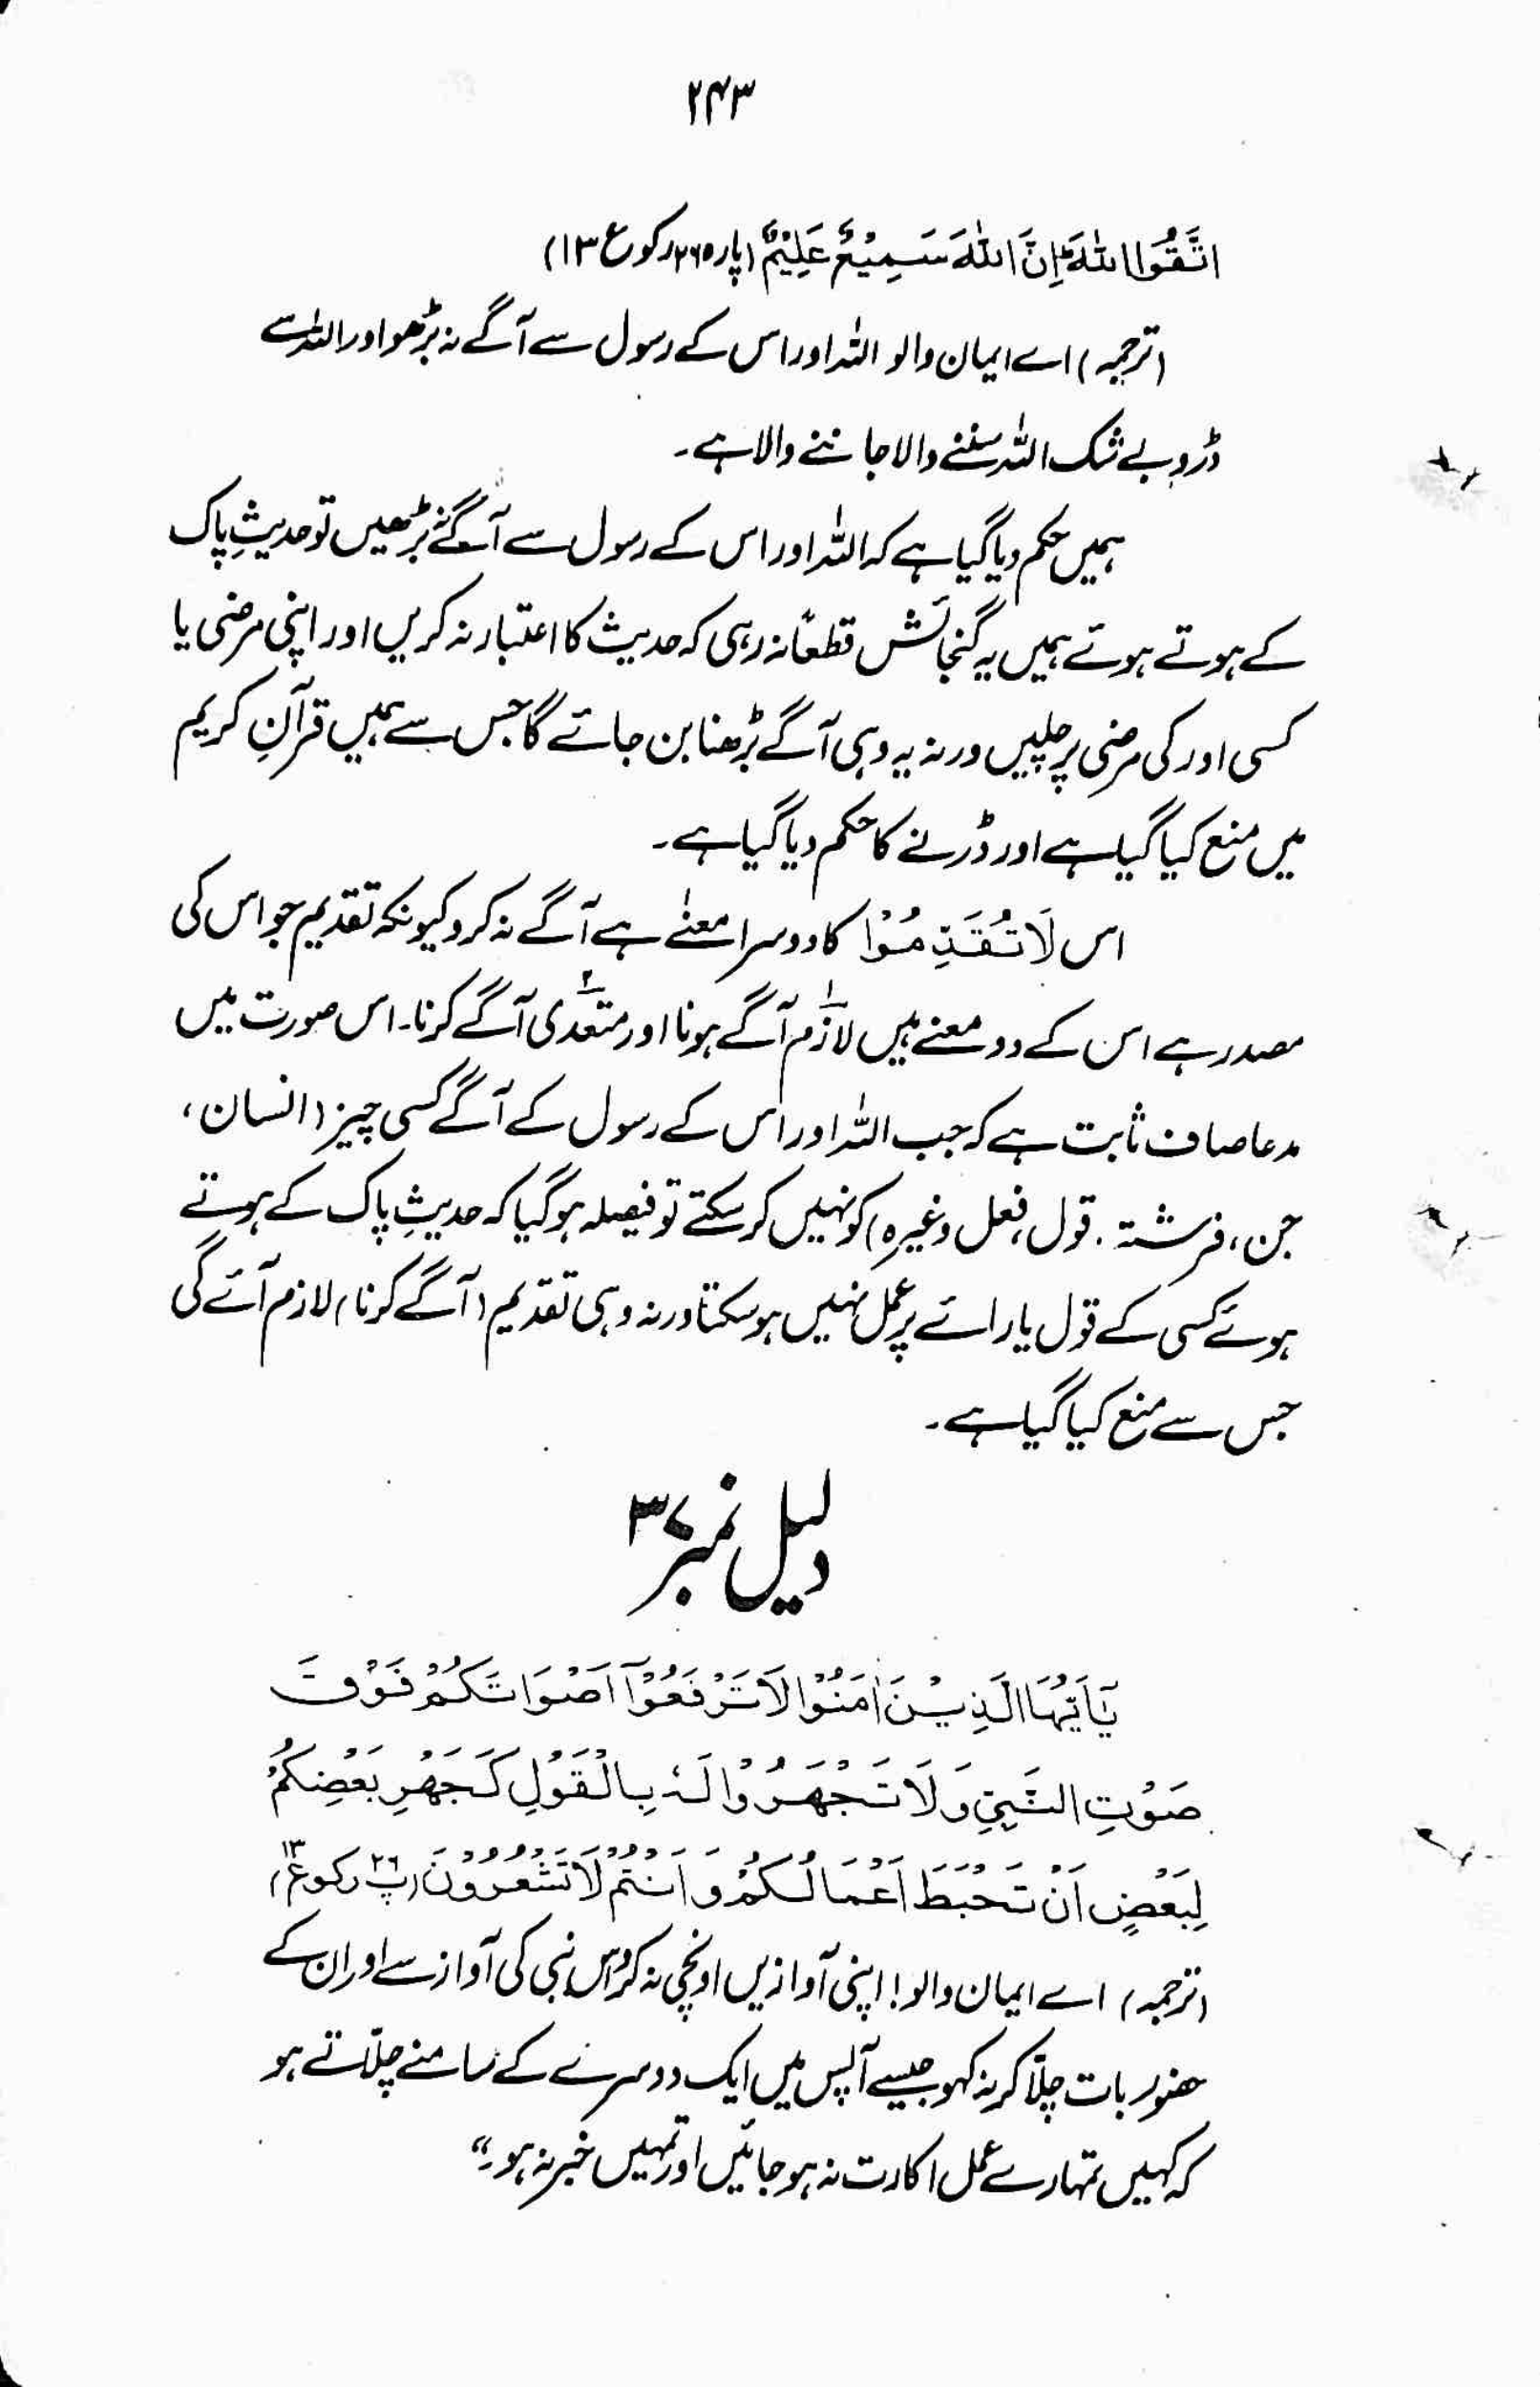 ۲۴۳
اتَّقُوا اللهَ اِنَّ اللهَ سَمِیْعٌ عَلِیْمٌ (پارہ ۲۶ رکوع ۱۳)
(ترجمہ) اے ایمان والو اللہ اور اس کے رسول سے آگے نہ بڑھو اور اللہ سے
ڈرو بے شک اللہ سننے والا جاننے والا ہے۔
ہمیں حکم دیا گیا ہے کہ اللہ اور اس کے رسول سے آگے نہ بڑھیں تو حدیثِ پاک
کے ہوتے ہوئے ہمیں یہ گنجائش قطعًا نہ رہی کہ حدیث کا اعتبار نہ کریں اور اپنی مرضی یا
کسی اور کی مرضی پر چلیں ورنہ یہ وہی آگے بڑھنا بن جائے گا جس سے ہمیں قرآنِ کریم
میں منع کیا گیا ہے اور ڈرنے کا حکم دیا گیا ہے۔
اس لَا تُقَدِّمُوْا کا دوسرا معنےٰ ہے آگے نہ کرو کیونکہ تقدیم جو اس کی
مصدر ہے اس کے دو معنے ہیں لازم۱ آگے ہونا اور متعدی۲ آگے کرنا۔ اس صورت میں
مدعا صاف ثابت ہے کہ جب اللہ اور اس کے رسول کے آگے کسی چیز (انسان،
جن، فرشتہ، قول، فعل وغیرہ) کو نہیں کر سکتے تو فیصلہ ہو گیا کہ حدیثِ پاک کے ہوتے
ہوئے کسی کے قول یا رائے پر عمل نہیں ہو سکتا ورنہ وہی تقدیم (آگے کرنا) لازم آئے گی
جس سے منع کیا گیا ہے۔
دلیل نمبر ۳
یٰٓاَیُّهَا الَّذِیْنَ اٰمَنُوْا لَا تَرْفَعُوْٓا اَصْوَاتَكُمْ فَوْقَ
صَوْتِ النَّبِیِّ وَ لَا تَجْهَرُوْا لَهٗ بِالْقَوْلِ كَجَهْرِ بَعْضِكُمْ
لِبَعْضٍ اَنْ تَحْبَطَ اَعْمَالُكُمْ وَ اَنْتُمْ لَا تَشْعُرُوْنَ (پ۲۶ رکوع ۱۳)
(ترجمہ) اے ایمان والو! اپنی آوازیں اونچی نہ کرو اس نبی کی آواز سے اور ان کے
حضور بات چلّا کر نہ کہو جیسے آپس میں ایک دوسرے کے سامنے چلّاتے ہو
کہ کہیں تمہارے عمل اکارت نہ ہو جائیں اور تمہیں خبر نہ ہو۔“